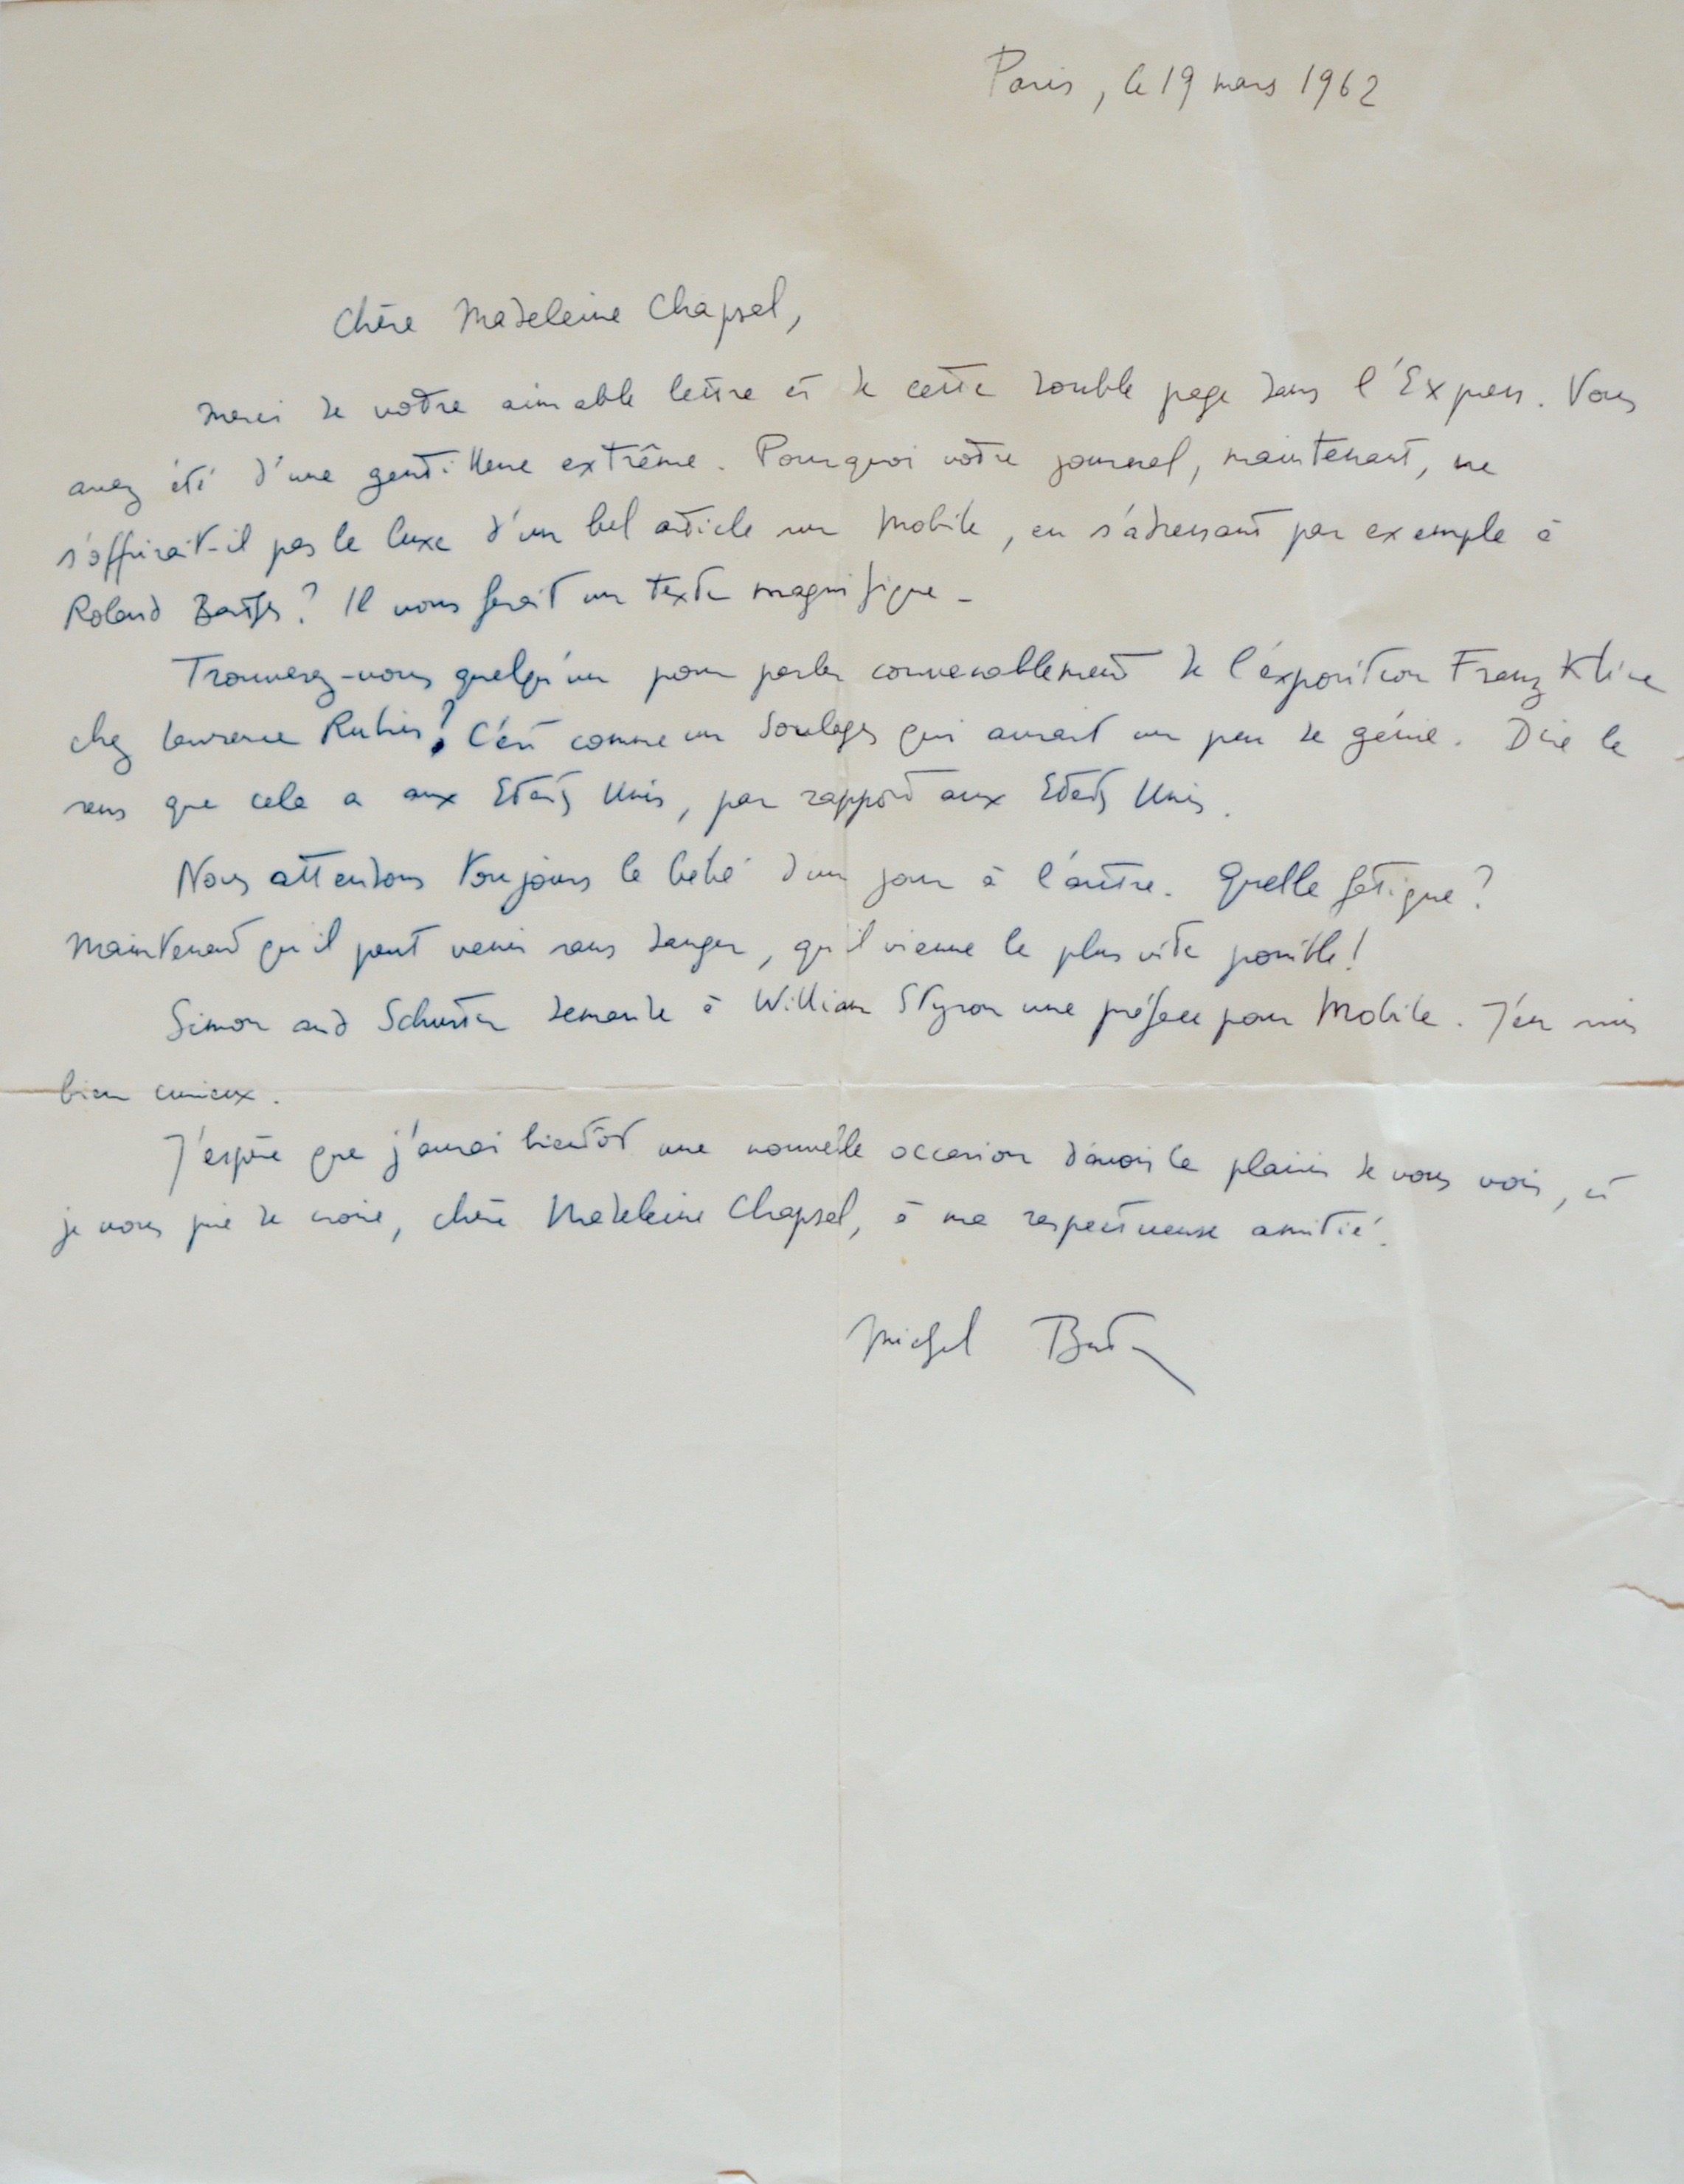 Paris, le 19 mars 1962
Chère Madeleine Chapsal,
Merci de votre aimable lettre et de cette double page dans l'Express. Vous
avez été d'une gentillesse extrême. Pourquoi votre journal, maintenant, ne
s'offrirait-il pas le luxe d'un bel article sur Mobile, en s'adressant par exemple à
Roland Barthes? Il vous ferait un texte magnifique -
Trouverez-vous quelqu'un pour parler convenablement de l'exposition Franz Kline
chez Lawrence Rubin? C'est comme un Soulages qui aurait un peu de génie. Dire le
sens que cela a aux Etats Unis, par rapport aux Etats Unis.
Nous attendons toujours le bébé d'un jour à l'autre. Quelle fatigue?
Maintenant qu'il peut venir sans danger, qu'il vienne le plus vite possible!
Simon and Schuster demande à William Styron une préface pour Mobile. J'en suis
bien curieux.
J'espère que j'aurai bientôt une nouvelle occasion d'avoir le plaisir de vous voir, et
je vous prie de croire, chère Madeleine Chapsal, à ma respectueuse amitié.
Michel Butor